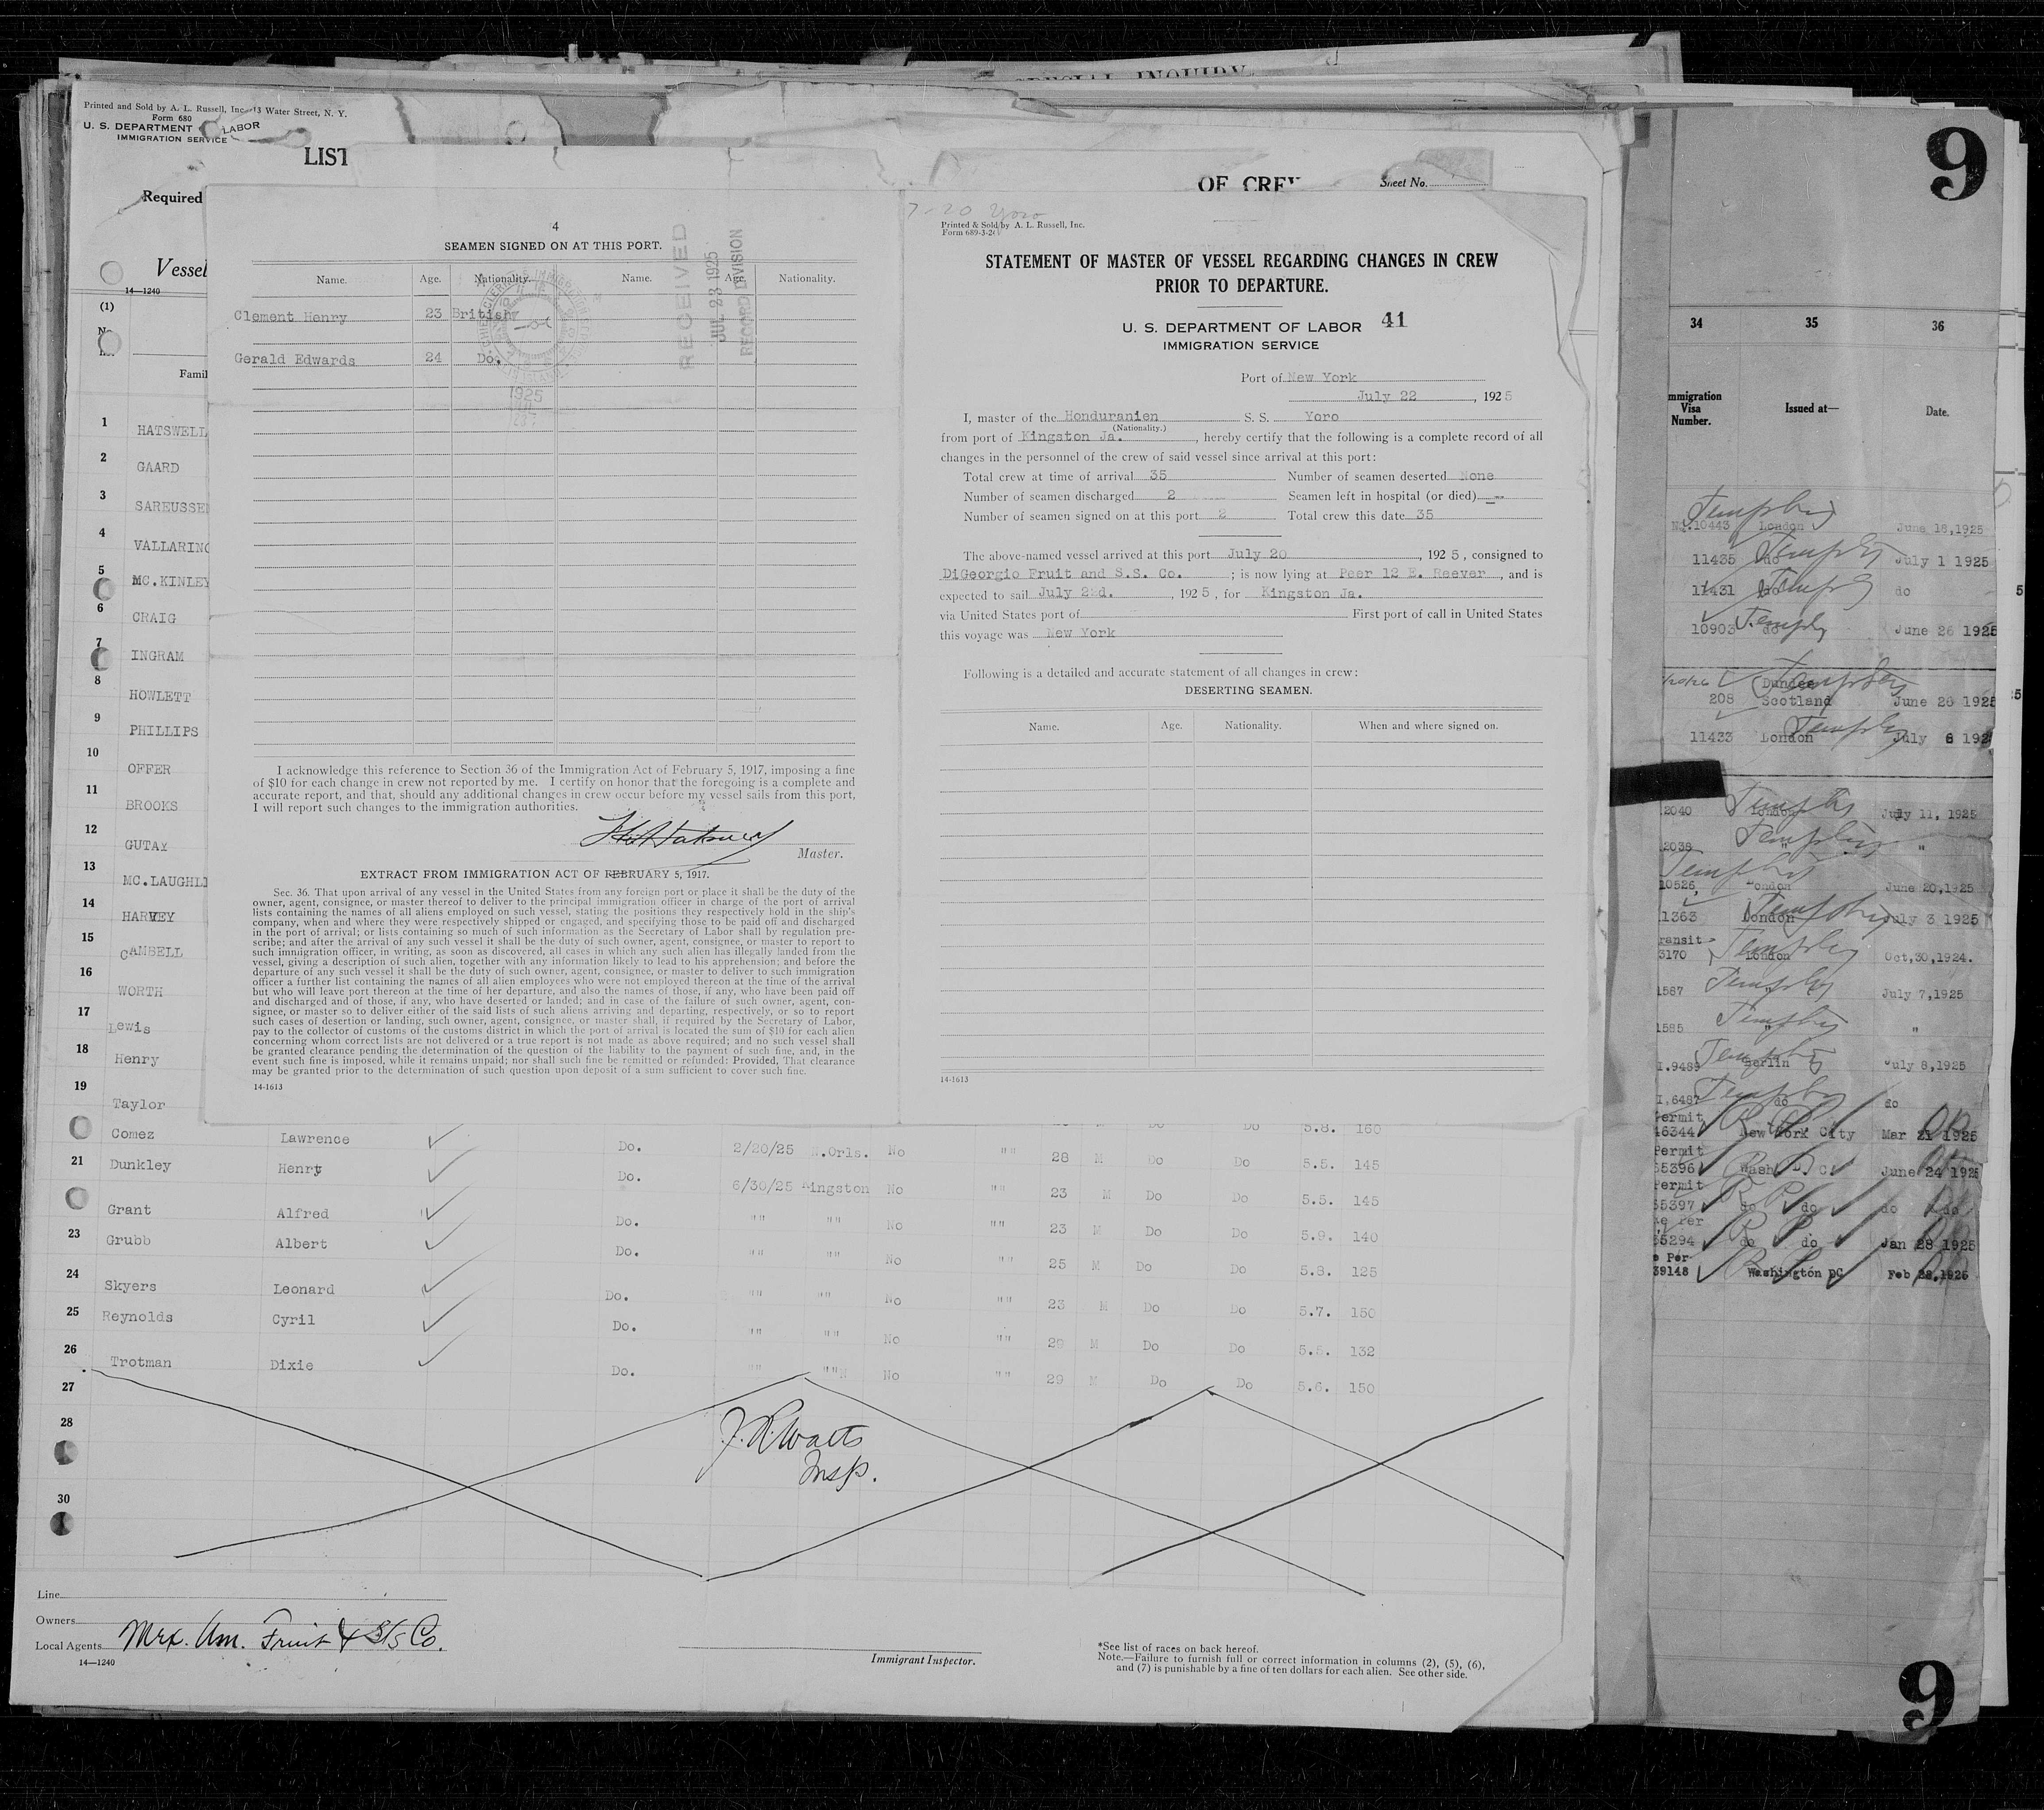 SPECIAL INQUIRY
Printed and Sold by A. L. Russell, Inc. 13 Water Street, N. Y.
Form 680
U. S. DEPARTMENT LABOR
IMMIGRATION SERVICE
LIST
OF CREW
Sheet No.
Required
Vessel
14—1240
(1)
Famil
1 HATSWELL
2 GAARD
3 SAREUSSE
4 VALLARINO
5 MC.KINLEY
6 CRAIG
7 INGRAM
8 HOWLETT
9 PHILLIPS
10 OFFER
11 BROOKS
12 GUTAY
13 MC.LAUGHLI
14 HARVEY
15 CAMBELL
16 WORTH
17 Lewis
18 Henry
19 Taylor
4
SEAMEN SIGNED ON AT THIS PORT.
Name. Age. Nationality. Name. Age. Nationality.
Clement Henry 23 British
Gerald Edwards 24 Do.
RECEIVED
JUL 23 1925
RECORD DIVISION
1925
I acknowledge this reference to Section 36 of the Immigration Act of February 5, 1917, imposing a fine
of $10 for each change in crew not reported by me. I certify on honor that the foregoing is a complete and
accurate report, and that, should any additional changes in crew occur before my vessel sails from this port,
I will report such changes to the immigration authorities.
Master.
EXTRACT FROM IMMIGRATION ACT OF FEBRUARY 5, 1917.
Sec. 36. That upon arrival of any vessel in the United States from any foreign port or place it shall be the duty of the
owner, agent, consignee, or master thereof to deliver to the principal immigration officer in charge of the port of arrival
lists containing the names of all aliens employed on such vessel, stating the positions they respectively hold in the ship's
company, when and where they were respectively shipped or engaged, and specifying those to be paid off and discharged
in the port of arrival; or lists containing so much of such information as the Secretary of Labor shall by regulation pre-
scribe; and after the arrival of any such vessel it shall be the duty of such owner, agent, consignee, or master to report to
such immigration officer, in writing, as soon as discovered, all cases in which any such alien has illegally landed from the
vessel, giving a description of such alien, together with any information likely to lead to his apprehension; and before the
departure of any such vessel it shall be the duty of such owner, agent, consignee, or master to deliver to such immigration
officer a further list containing the names of all alien employees who were not employed thereon at the time of the arrival
but who will leave port thereon at the time of her departure, and also the names of those, if any, who have been paid off
and discharged and of those, if any, who have deserted or landed; and in case of the failure of such owner, agent, con-
signee, or master so to deliver either of the said lists of such aliens arriving and departing, respectively, or so to report
such cases of desertion or landing, such owner, agent, consignee, or master shall, if required by the Secretary of Labor,
pay to the collector of customs of the customs district in which the port of arrival is located the sum of $10 for each alien
concerning whom correct lists are not delivered or a true report is not made as above required; and no such vessel shall
be granted clearance pending the determination of the question of the liability to the payment of such fine, and, in the
event such fine is imposed, while it remains unpaid; nor shall such fine be remitted or refunded: Provided, That clearance
may be granted prior to the determination of such question upon deposit of a sum sufficient to cover such fine.
14-1613
7-20 Yoro
Printed & Sold by A. L. Russell, Inc.
Form 689-3-2
STATEMENT OF MASTER OF VESSEL REGARDING CHANGES IN CREW
PRIOR TO DEPARTURE.
U. S. DEPARTMENT OF LABOR 41
IMMIGRATION SERVICE
Port of New York
July 22, 1925
I, master of the Honduranien S. S. Yoro
(Nationality.)
from port of Kingston Ja., hereby certify that the following is a complete record of all
changes in the personnel of the crew of said vessel since arrival at this port:
Total crew at time of arrival 35 Number of seamen deserted None
Number of seamen discharged 2 Seamen left in hospital (or died) --
Number of seamen signed on at this port 2 Total crew this date 35
The above-named vessel arrived at this port July 20, 1925, consigned to
DiGeorgio Fruit and S.S. Co. ; is now lying at Peer 12 E. Reever, and is
expected to sail July 22d., 1925, for Kingston Ja.
via United States port of First port of call in United States
this voyage was New York
Following is a detailed and accurate statement of all changes in crew:
DESERTING SEAMEN.
Name. Age. Nationality. When and where signed on.
14-1613
Do Do 5.8. 160
Comez Lawrence Do. 2/20/25 N.Orls. No "" 28 M Do Do 5.5. 145
21 Dunkley Henry Do. 6/30/25 Kingston No "" 23 M Do Do 5.5. 145
Grant Alfred Do. "" "" No "" 23 M Do Do 5.9. 140
23 Grubb Albert Do. "" "" No 25 M Do Do 5.8. 125
24 Skyers Leonard Do. "" "" No "" 23 M Do Do 5.7. 150
25 Reynolds Cyril Do. "" "" No 29 M Do Do 5.5. 132
26 Trotman Dixie Do. "" "" No "" 29 M Do Do 5.6. 150
27
28
30
J. R. Watts
Insp.
Line
Owners
Local Agents Mex. Am. Fruit & S/S Co.
14—1240
Immigrant Inspector.
*See list of races on back hereof.
Note.—Failure to furnish full or correct information in columns (2), (5), (6),
and (7) is punishable by a fine of ten dollars for each alien. See other side.
9
34 35 36
mmigration
Visa
Number.
Issued at—
Date.
No.10443 London June 18,1925
11435 do July 1 1925
11431 do do
10903 do June 26 1925
208 Dundee Scotland June 26 1925
11433 London July 6 192
2040 London July 11, 1925
2038 " "
10526, London June 20,1925
1363 London July 3 1925
ransit
3170 London Oct,30,1924.
1587 " July 7,1925
1585 " "
1.9489 Berlin July 8,1925
1,6487 do do
Permit
163447 New York City Mar 21 1925
Permit
55396 Wash. D. C. June 24 1925
Permit
55397 do do do
55294 do do Jan 28 1925
e Per
39148 Washington DC Feb 28.1925
9